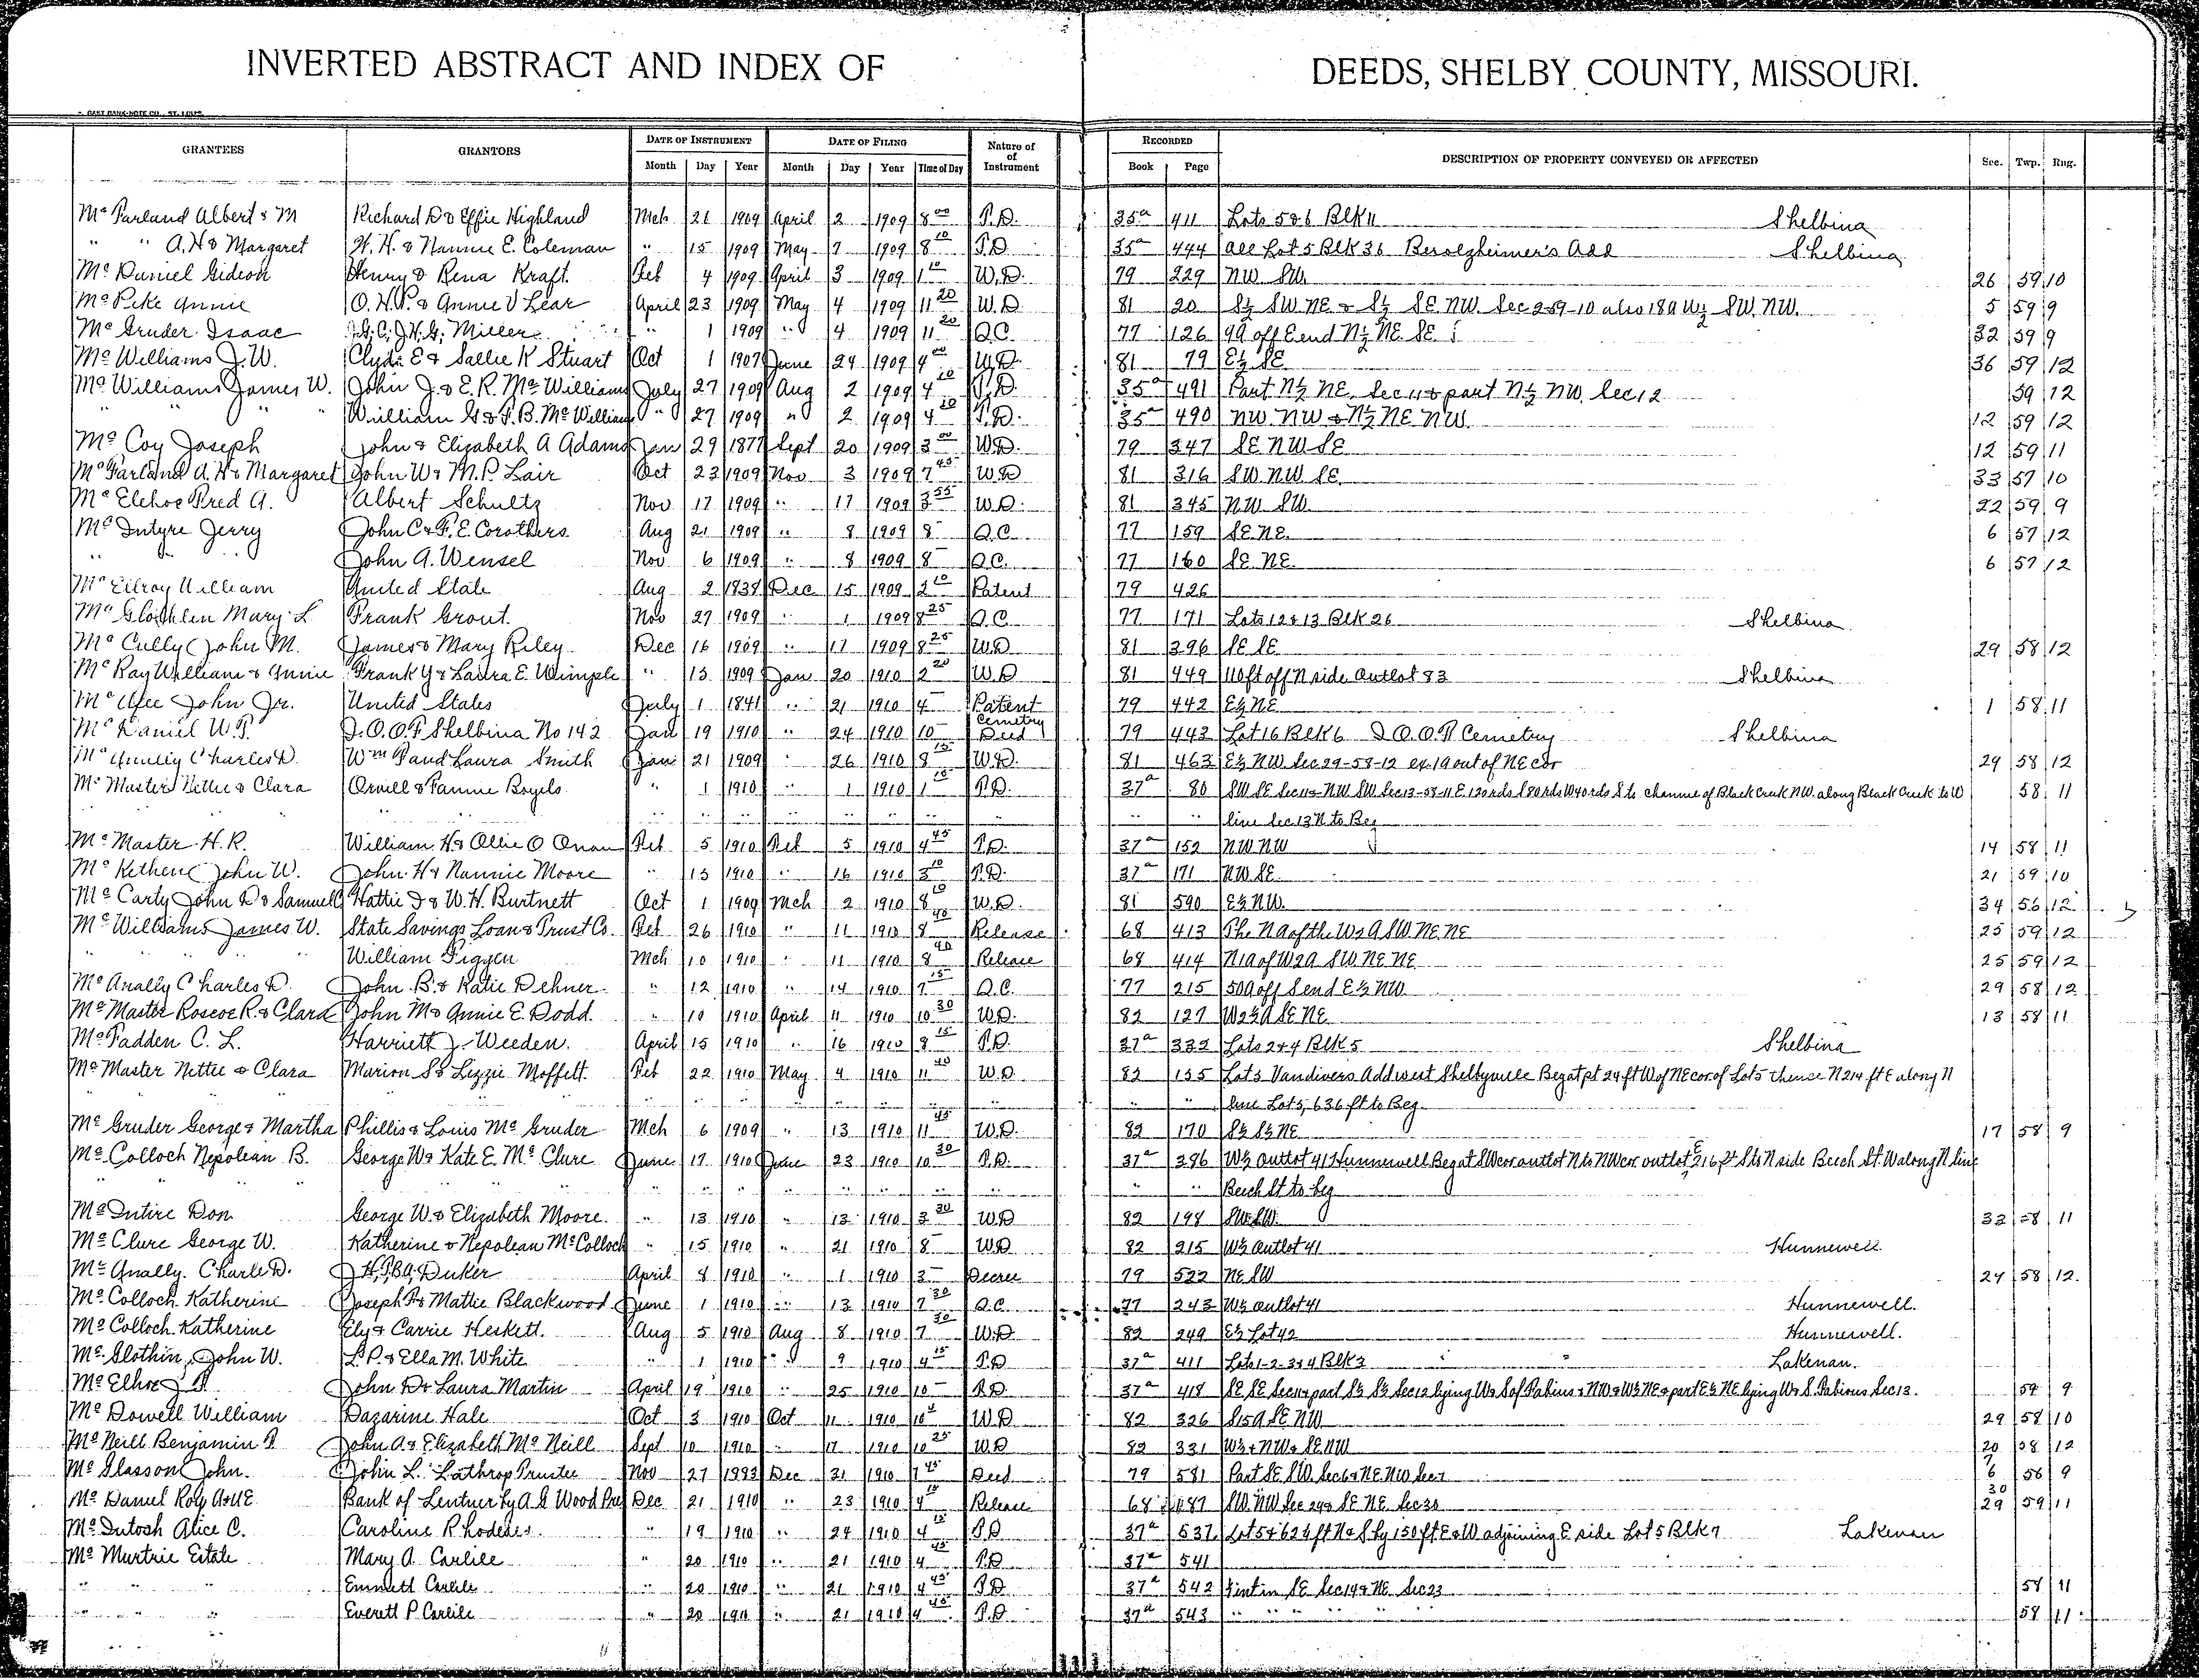 INVERTED ABSTRACT AND INDEX OF DEEDS, SHELBY COUNTY, MISSOURI.
GRANTEES GRANTORS DATE OF INSTRUMENT DATE OF FILING Nature of Instrument RECORDED DESCRIPTION OF PROPERTY CONVEYED OR AFFECTED Sec. Twp. Rng.
Month Day Year Month Day Year Time of Day Book Page
Mc Farland Albert & M Richard D & Effie Highland Mch 26 1909 April 2 1909 8 00 T.D. 35a 411 Lots 5&6 Blk 11 Shelbina
" " A.H & Margaret W. H. & Nannie E. Coleman " 15 1909 May 7 1909 8 10 T.D 35a 444 all Lot 5 Blk 36 Berolzheimer's Add Shelbina
Mc Daniel Gideon Henry & Rena Kraft Feb 4 1909 April 3 1909 1 10 W.D. 79 229 NW SW. 26 59 10
Mc Pike Annie O.H.P. & Annie V Lear April 23 1909 May 4 1909 11 20 W.D 81 20 S½ SW. NE & S½ SE. NW. Sec 2-59-10 also 18a W½ SW. NW. 5 59 9
Mc Gruder Isaac Miller " 1 1909 " 4 1909 11 20 Q.C. 77 126 9a off E end N½ NE. SE 32 59 9
Mc Williams J.W. Clyde E & Sallie K Stuart Oct 1 1907 June 24 1909 4 00 W.D. 81 79 E½ SE 36 59 12
Mc Williams James W. John J. & E.R. Mc Williams July 27 1909 Aug 2 1909 4 10 T.D. 35a 491 Part N½ NE. Sec 11 & part N½ NW. Sec 12 59 12
" " " William G & F.B. Mc Williams " 27 1909 " 2 1909 4 10 T.D. 35a 490 NW NW & N½ NE NW 12 59 12
Mc Coy Joseph John & Elizabeth A Adams Jan 29 1877 Sept 20 1909 3 00 W.D. 79 347 SE NW SE 12 59 11
Mc Farland A.H & Margaret John W & M.P. Lair Oct 23 1909 Nov 3 1909 7 45 W.D 81 316 SW. NW. SE. 33 57 10
Mc Elehoe Fred A. Albert Schultz Nov 17 1909 " 17 1909 3 55 W.D. 81 345 NW. SW. 22 59 9
Mc Intyre Jerry John C & F.E. Corothers Aug 21 1909 " 8 1909 8 Q.C. 77 159 SE. NE. 6 57 12
" John A. Wensel Nov 6 1909 " 8 1909 8 Q.C. 77 160 SE. NE. 6 57 12
Mc Ellroy William United State Aug 2 1838 Dec 15 1909 2 10 Patent 79 426
Mc Glothlen Mary L Frank Grout. Nov 27 1909 " 1 1909 8 25 Q.C. 77 171 Lots 12 & 13 Blk 26 Shelbina
Mc Cully John M. James & Mary Riley Dec 16 1909 " 17 1909 8 25 W.D. 81 396 SE SE 29 58 12
Mc Ray William & Annie Frank Y & Laura E. Wimple " 13 1909 Jan 20 1910 2 20 W.D 81 449 110 ft off N side Outlot 83 Shelbina
Mc Afee John Jr. United States July 1 1841 " 21 1910 4 Patent 79 442 E½ NE 1 58 11
Mc Daniel W.T. I.O.O.F Shelbina No 142 Jan 19 1910 " 24 1910 10 Cemetry Deed 79 443 Lot 16 Blk 6 I.O.O.F Cemetery Shelbina
Charles D. Wm P and Laura Smith Jan 21 1909 " 26 1910 8 15 W.D. 81 463 E½ NW Sec 29-58-12 ex. 1a out of NE cor 29 58 12
Mc Master Nettie & Clara Orvill & Fannie Boyels " 1 1910 " 1 1910 1 15 T.D. 37a 80 SW SE Sec 11 & NW SW Sec 13-58-11 E 120 rds S 80 rds W 40 rds S to channel of Black Creek NW. along Black Creek to W 58 11
" " " " " " " " " " line Sec 13 N to Beg
Mc Master H.R. William H & Ollie O Onan Feb 5 1910 Feb 5 1910 4 45 T.D. 37a 152 NW NW 14 58 11
Mc Kethen John W. John H & Nannie Moore " 15 1910 " 16 1910 3 10 T.D. 37a 171 NW. SE. 21 59 10
Mc Carty John D & Samuel C Hattie I & W.H. Burtnett Oct 1 1909 Mch 2 1910 8 10 W.D. 81 590 E½ NW. 34 56 12
Mc Williams James W. State Savings Loan & Trust Co. Feb 26 1910 " 11 1910 8 40 Release 68 413 The N a of the W 2 A SW NE. NE 25 59 12
" " " William Figgen Mch 10 1910 " 11 1910 8 40 Release 68 414 N 1a of W 2 a SW NE NE 25 59 12
Mc Anally Charles D. John B. & Katie Dehner " 12 1910 " 14 1910 7 15 Q.C. 77 215 50a off S end E½ NW. 29 58 12
Mc Master Roscoe R. & Clara John M & Annie E. Dodd. " 10 1910 April 11 1910 10 30 W.D. 82 127 W 2½ A SE NE 13 58 11
Mc Fadden C. L. Harriett J. Weeden. April 15 1910 " 16 1910 8 15 T.D. 37a 332 Lots 2 & 4 Blk 5 Shelbina
Mc Master Nettie & Clara Marion S & Lizzie Moffett. Feb 22 1910 May 4 1910 11 40 W.D 82 155 Lot 5 Vandivers Add west Shelbyville Beg at pt 24 ft W of NE cor of Lot 5 thence N 214 ft E along N
" " " " " " " " " line Lot 5, 636 ft to Beg.
Mc Gruder George & Martha Phillis & Louis Mc Gruder Mch 6 1909 " 13 1910 11 45 W.D. 82 170 S½ S½ NE 17 58 9
Mc Colloch Nepolean B. George W & Kate E. Mc Clure June 17 1910 June 23 1910 10 30 T.D. 37a 386 W½ Outlot 41 Hunnewell Beg at SW cor outlot N to NW cor outlot E 216 ft S to N side Beech St. W along N line
" " " " " " " " " " Beech St to beg
Mc Intire Don George W. & Elizabeth Moore. " 13 1910 " 13 1910 3 30 W.D 82 198 SW. SW. 32 58 11
Mc Clure George W. Katherine & Nepolean Mc Colloch " 15 1910 " 21 1910 8 W.D 82 215 W½ Outlot 41 Hunnewell.
Mc Anally. Charle D. Duker April 8 1910 " 1 1910 3 Decree 79 522 NE SW 24 58 12.
Mc Colloch Katherine Joseph F & Mattie Blackwood June 1 1910 " 13 1910 7 30 Q.C. 77 243 W½ Outlot 41 Hunnewell.
Mc Colloch Katherine Ely & Carrie Heskett. Aug 5 1910 Aug 8 1910 7 30 W.D. 82 249 E½ Lot 42 Hunnewell.
Mc Glothin, John W. L.P. & Ella M. White " 1 1910 " 9 1910 4 15 T.D 37a 411 Lots 1-2-3&4 Blk 3 Lakenan.
Mc Elhoe J F John D & Laura Martin April 19 1910 " 25 1910 10 T.D 37a 418 SE SE Sec 11 & part S½ S½ Sec 12 lying W & S of Fabius & NW & W½ NE & part E½ NE lying W & S. Fabious Sec 13. 59 9
Mc Dowell William Dazarine Hale Oct 3 1910 Oct 11 1910 10 W.D 82 326 S 15 A SE NW 29 58 10
Mc Neill Benjamin F John A. & Elizabeth Mc Neill Sept 10 1910 " 17 1910 10 25 W.D 82 331 W½ & NW & SE NW 20 58 12
Mc Glasson John. John L. Lathrop Trustee Nov 27 1883 Dec 31 1910 1 45 Deed 79 581 Part SE. SW. Sec 6 & NE NW Sec 7 7 6 56 9
Mc Daniel Roy A & U E Bank of Lentner by A G Wood Pres Dec 21 1910 " 23 1910 4 10 Release 68 687 SW. NW Sec 29 & SE. NE. Sec 30 30 29 59 11
Mc Intosh Alice C. Caroline Rhodes. " 19 1910 " 24 1910 4 15 T.D 37a 537 Lot 5 & 62½ ft N & S by 150 ft E & W adjoining E side Lot 5 Blk 7 Lakenan
Mc Murtrie Estate Mary A. Carlile " 20 1910 " 21 1910 4 45 T.D 37a 541
" " " Emmett Carlile " 20 1910 " 21 1910 4 45 T.D 37a 542 ¼ int in SE Sec 14 & NE Sec 23 58 11
" " " Everett P. Carlile " 20 1910 " 21 1910 4 45 T.D 37a 543 " " " " " 58 11